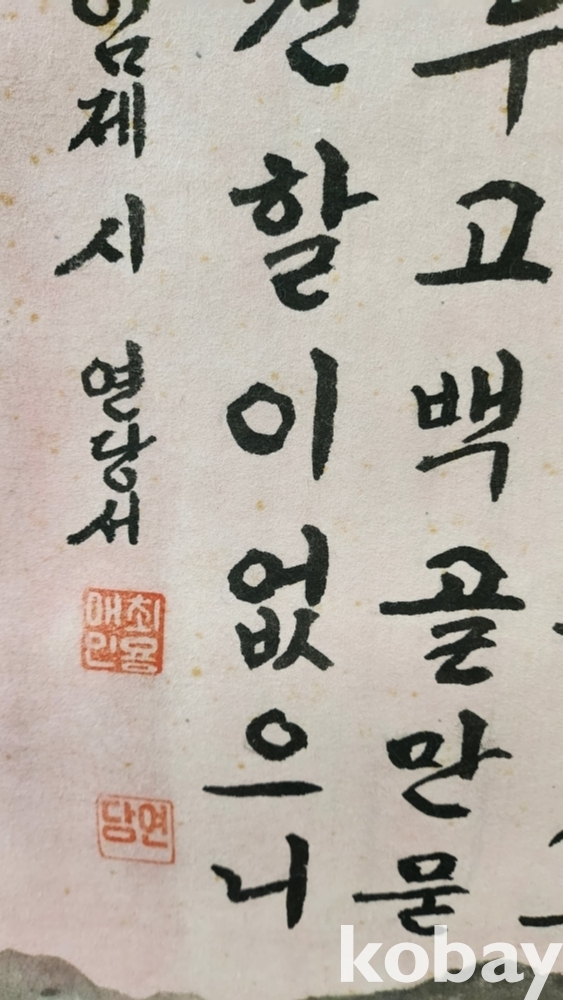 두고백골만묻
권할이없으니
임제 시 연당서
연당
kobay